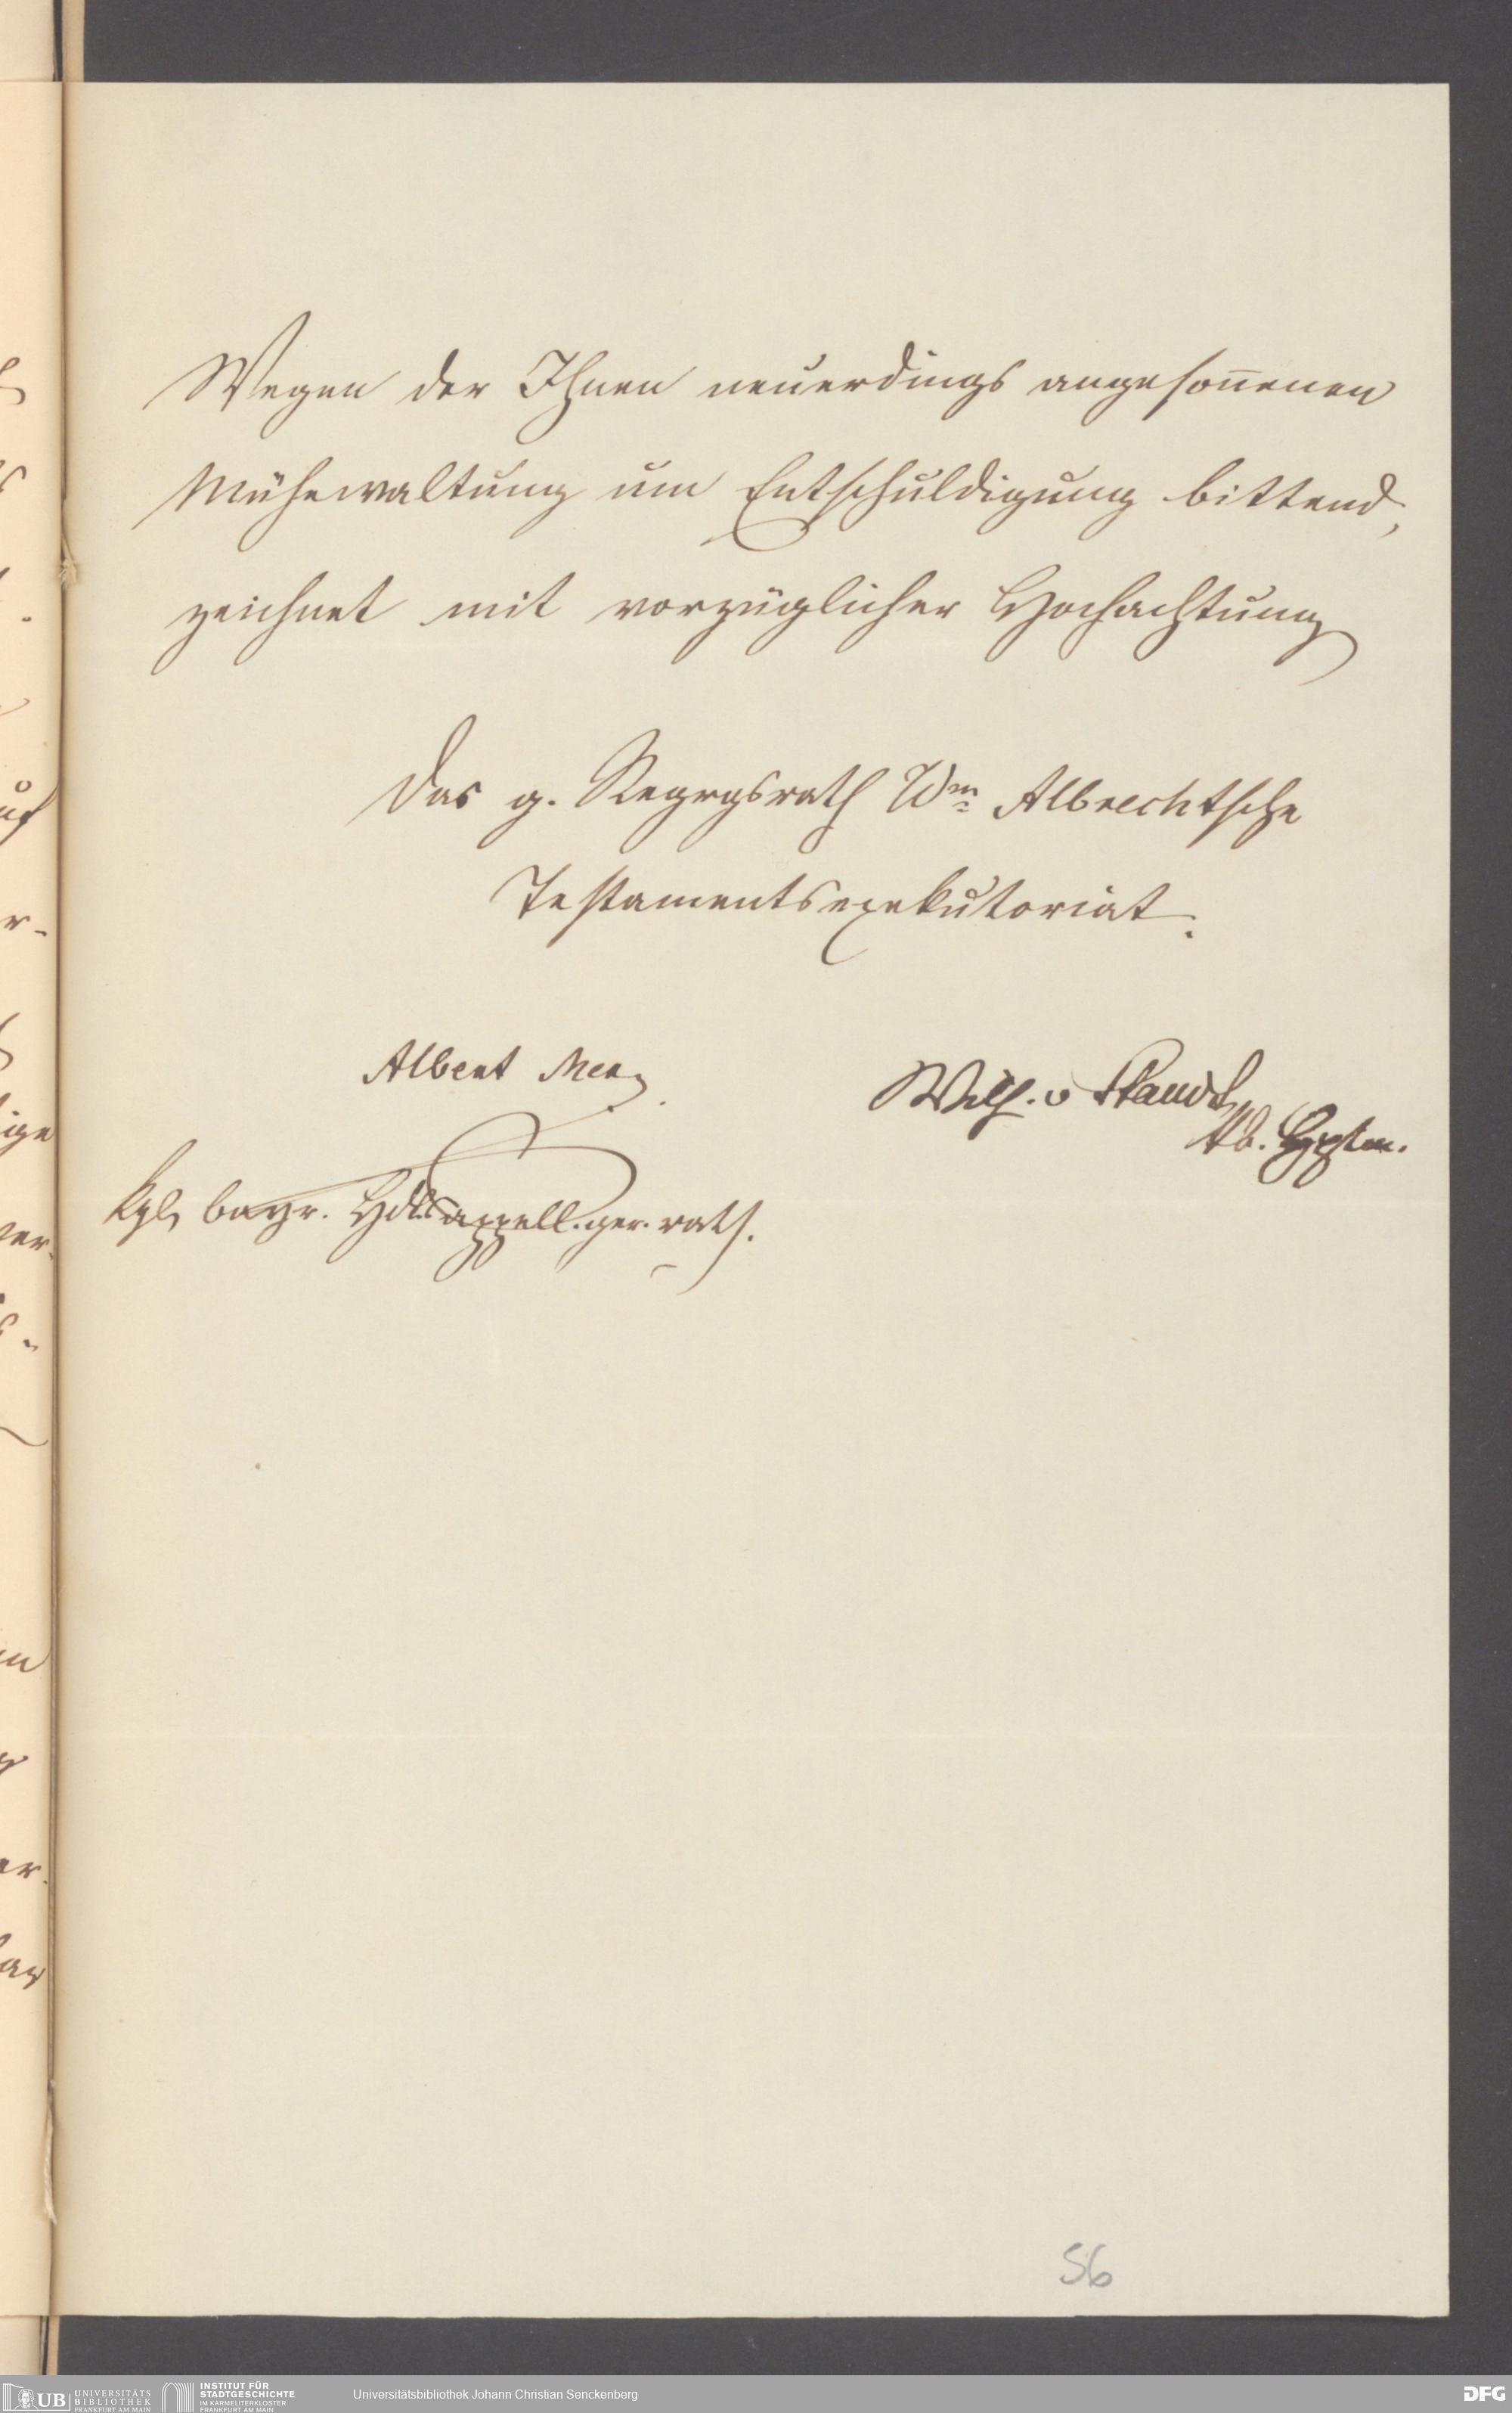 Wegen der Ihnen neuerdings angesoñenen
Mühewaltung um Entschuldigung bittend,
zeichnet mit vorzüglicher Hochachtung
Das g. Regrgsrath Wm Albrechtsche
Testamentsexekutoriat.
Albert Merz.
Wilh. v
Kgl. bayr. Hdlsappell.ger.rath.
56
UB UNIVERSITÄTS BIBLIOTHEK FRANKFURT AM MAIN
INSTITUT FÜR STADTGESCHICHTE IM KARMELITERKLOSTER FRANKFURT AM MAIN
Universitätsbibliothek Johann Christian Senckenberg
DFG